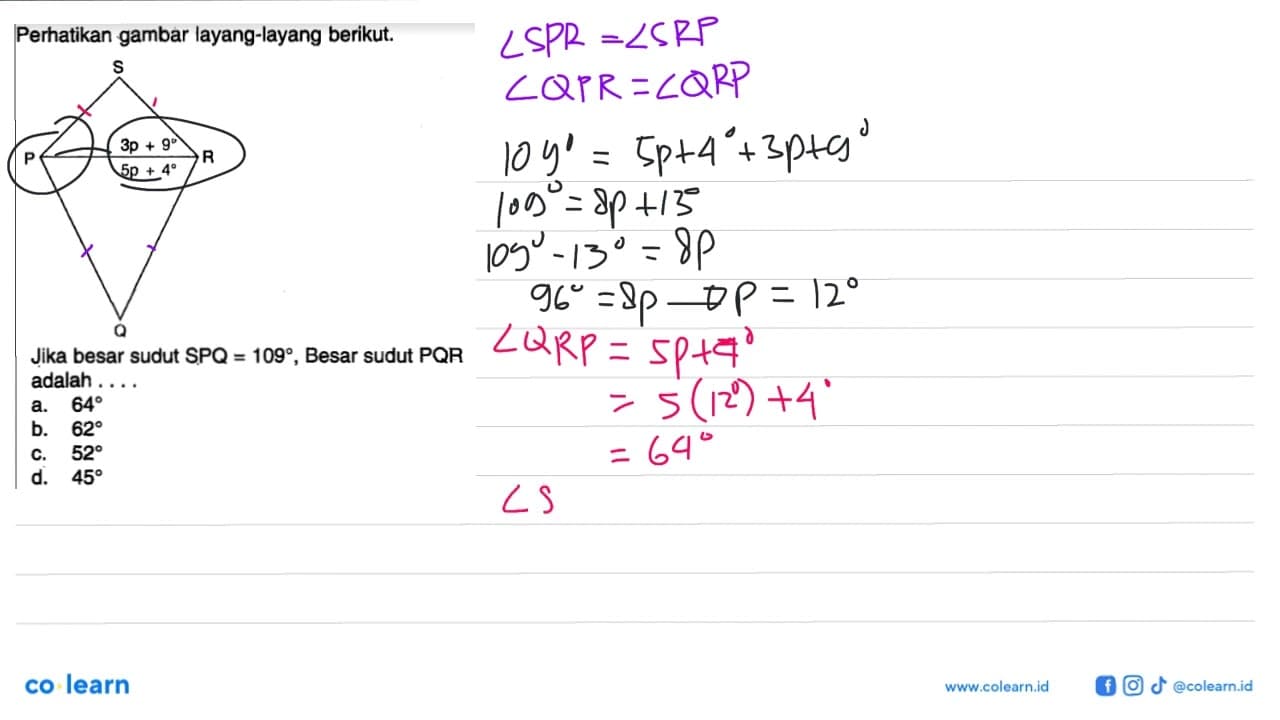 Perhatikan gambar layang-layang berikut.
S
3p + 9°
P
R
5p + 4°
Q
Jika besar sudut SPQ = 109°, Besar sudut PQR
adalah . . . .
a. 64°
b. 62°
c. 52°
d. 45°
∠SPR = ∠SRP
∠QPR = ∠QRP
109° = 5p+4° + 3p+9°
109° = 8p + 13°
109° - 13° = 8p
96° = 8p → p = 12°
∠QRP = 5p+4°
= 5(12°) + 4°
= 64°
∠S
co learn
www.colearn.id
@colearn.id